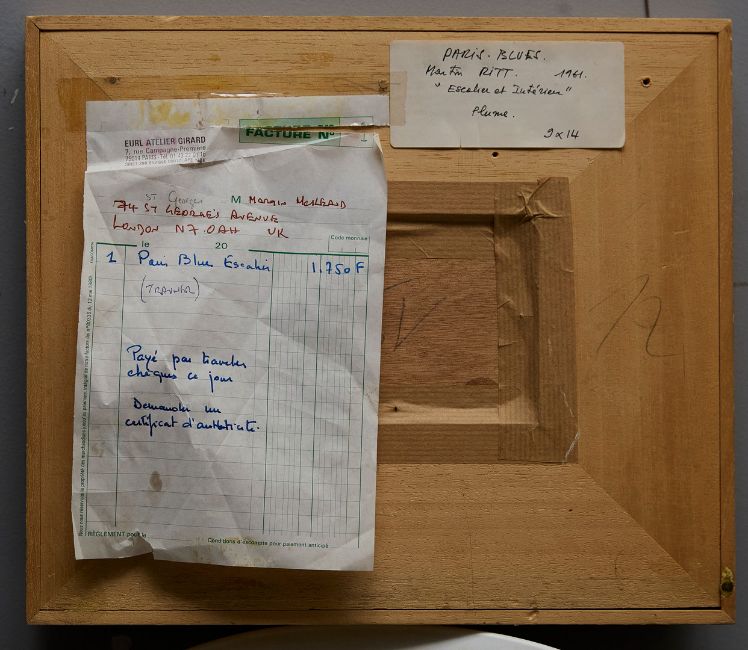 PARIS. BLUES.
Martin RITT. 1961.
"Escalier et Intérieur"
Plume.
9 x 14
FACTURE N°
EURL ATELIER GIRARD
7, rue Campagne-Première
75014 PARIS - Tél.
ST Georges
M
74 ST GEORGE'S AVENUE
LONDON N7 0AH UK
Code monnaie
le 20
1 Paris Blues Escalier 1.750 F
(TRAUNER)
Payé par traveler
chèques ce jour
Demander un
certificat d'authenticité.
RÈGLEMENT pour le
Conditions d'escompte pour paiement anticipé